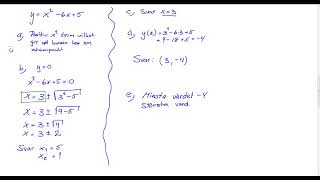 y = x² - 6x + 5
a) Positiv x² term vilket
ger att kurvan har en
minimipunkt
b) y = 0
x² - 6x + 5 = 0
x = 3 ± √3² - 5
x = 3 ± √9 - 5
x = 3 ± √4
x = 3 ± 2
Svar x₁ = 5
x₂ = 1
c) Svar x = 3
d) y(3) = 3² - 6·3 + 5
= 9 - 18 + 5 = -4
Svar: (3, -4)
e) Minsta värdet -4
Största värd